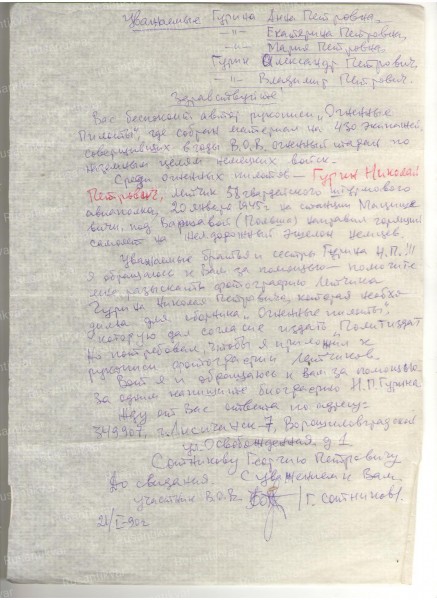 Уважаемые Гурина Анна Петровна,
-"- Екатерина Петровна,
-"- Мария Петровна.
Гурин Александр Петрович
-"- Владимир Петрович.
Здравствуйте!
Вас беспокоит автор рукописи „Огненные
пилоты", где собран материал на 430 экипажей,
совершивших в годы В.О.В. огненный таран по
наземным целям немецких войск.
Среди огненных пилотов – Гурин Николай
Петрович, лётчик 58 гвардейского штурмового
авиаполка, 20 января 1945 г на станции
под Варшавой (Польша) направил горящий
самолёт на железнодорожный эшелон немцев.
Уважаемые братья и сестры Гурина Н.П.!!!
Я обращаюсь к Вам за помощью – помогите
мне разыскать фотографию лётчика
Гурина Николая Петровича, которая необхо-
дима для сборника „Огненные пилоты",
который дал согласие издать „Политиздат"
но потребовал, чтобы я приложил к
рукописи фотографии лётчиков.
Вот я и обращаюсь к Вам за помощью.
За одним напишите биографию Н.П. Гурина.
Жду от Вас ответа по адресу:
349907, г. Лисичанск-7, Ворошиловградской
ул. Освобожденная д. 1
Сотникову Георгию Петровичу
До свидания. С уважением к Вам
участник В.О.В. /Г. Сотников/.
21/I-90г